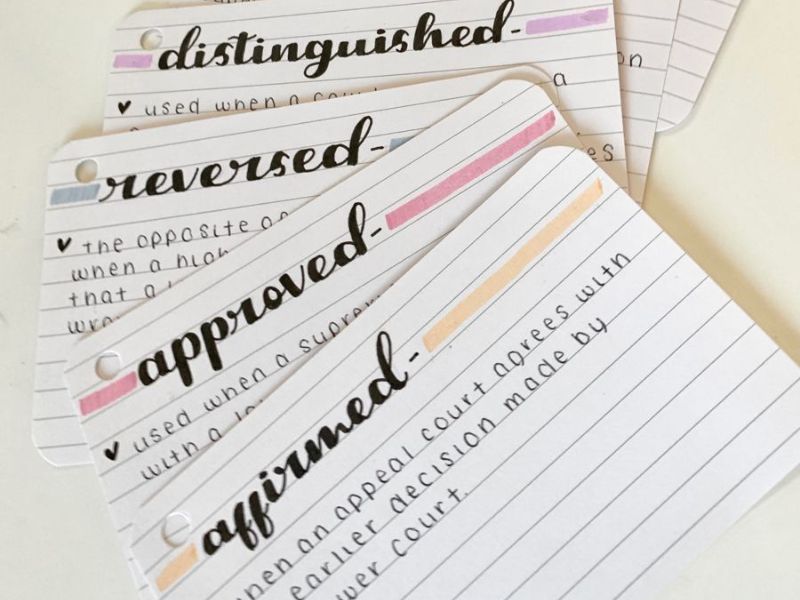 distinguished-
♥ used when a
a
on
es
reversed-
♥ the opposite
when a
that a
approved-
♥ used when a
with a
affirmed-
an appeal court agrees with
earlier decision made by
court.